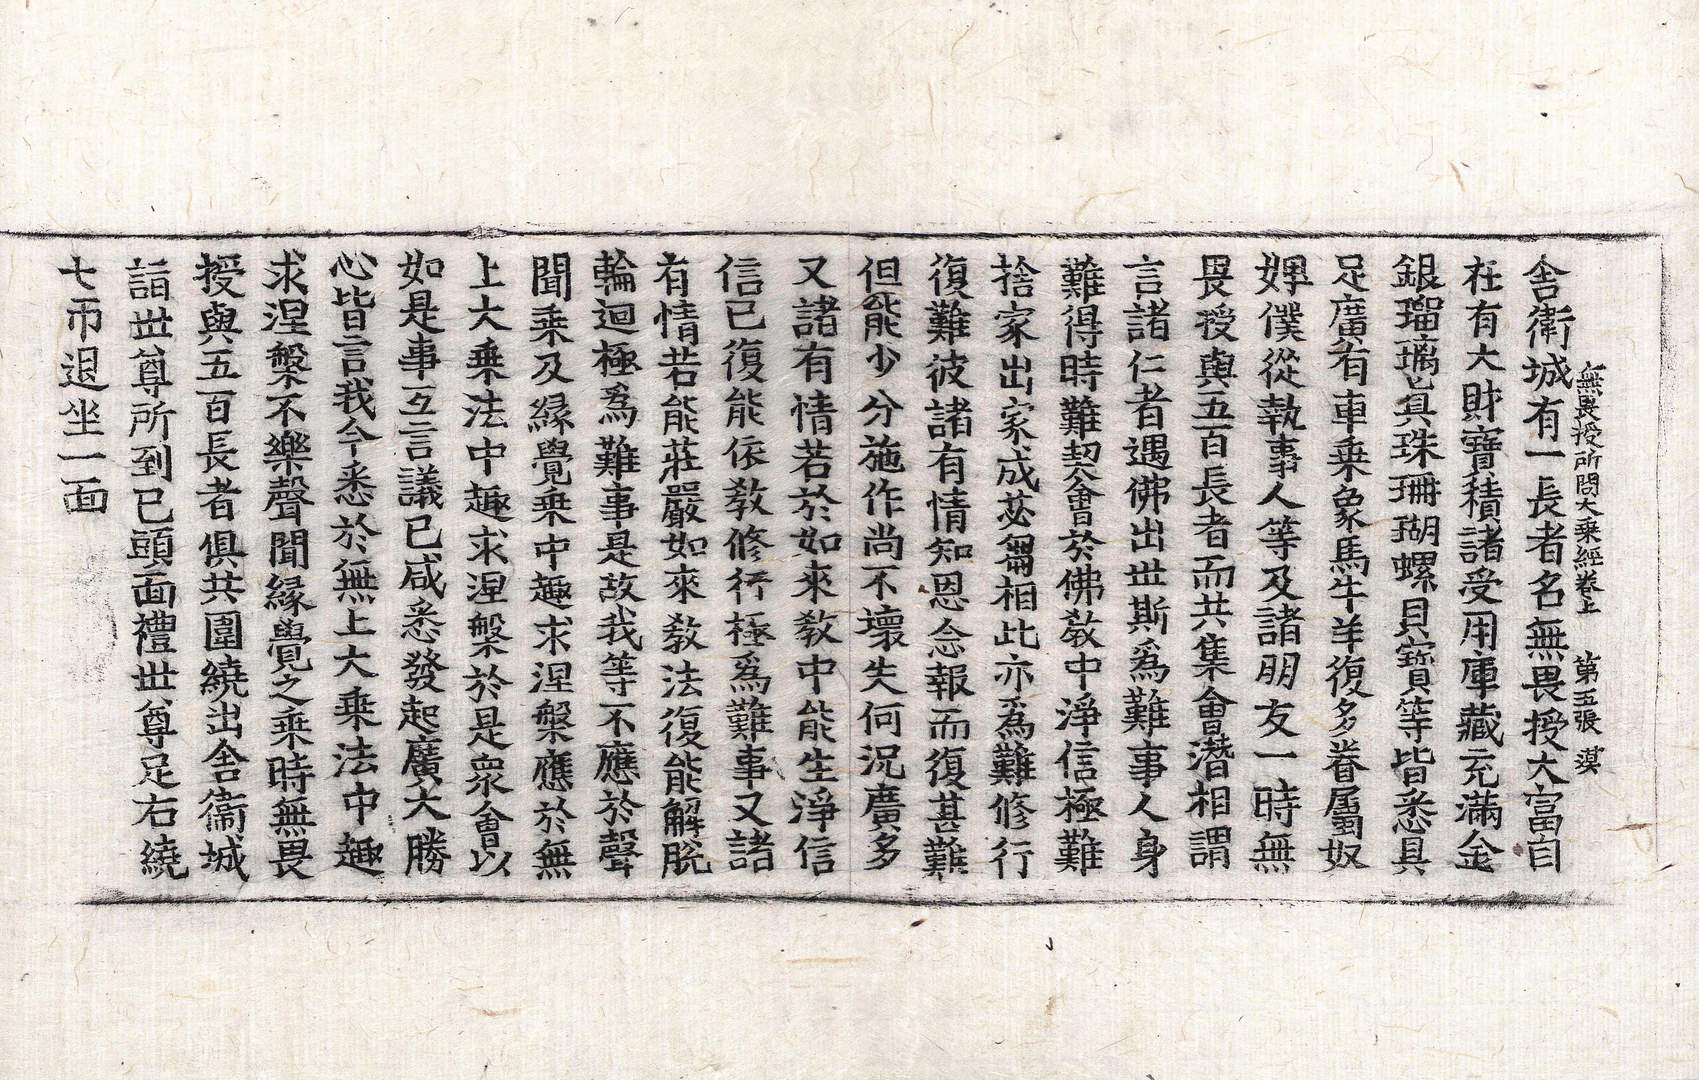 無畏授所問大乘經卷上 第五張 漠
舍衛城有一長者名無畏授大富自
在有大財寶積諸受用庫藏充滿金
銀瑠璃真珠珊瑚螺貝寶等皆悉具
足廣有車乘象馬牛羊復多眷屬奴
婢僕從執事人等及諸朋友一時無
畏授與五百長者而共集會潛相謂
言諸仁者遇佛出世斯爲難事人身
難得時難契會於佛教中淨信極難
捨家出家成苾芻相此亦爲難修行
復難彼諸有情知恩念報而復甚難
但能少分施作尚不壞失何況廣多
又諸有情若於如來教中能生淨信
信已復能依教修行極爲難事又諸
有情若能莊嚴如來教法復能解脫
輪迴極爲難事是故我等不應於聲
聞乘及緣覺乘中趣求涅槃應於無
上大乘法中趣求涅槃於是衆會以
如是事互言議已咸悉發起廣大勝
心皆言我今悉於無上大乘法中趣
求涅槃不樂聲聞緣覺之乘時無畏
授與五百長者俱共圍繞出舍衛城
詣世尊所到已頭面禮世尊足右繞
七帀退坐一面